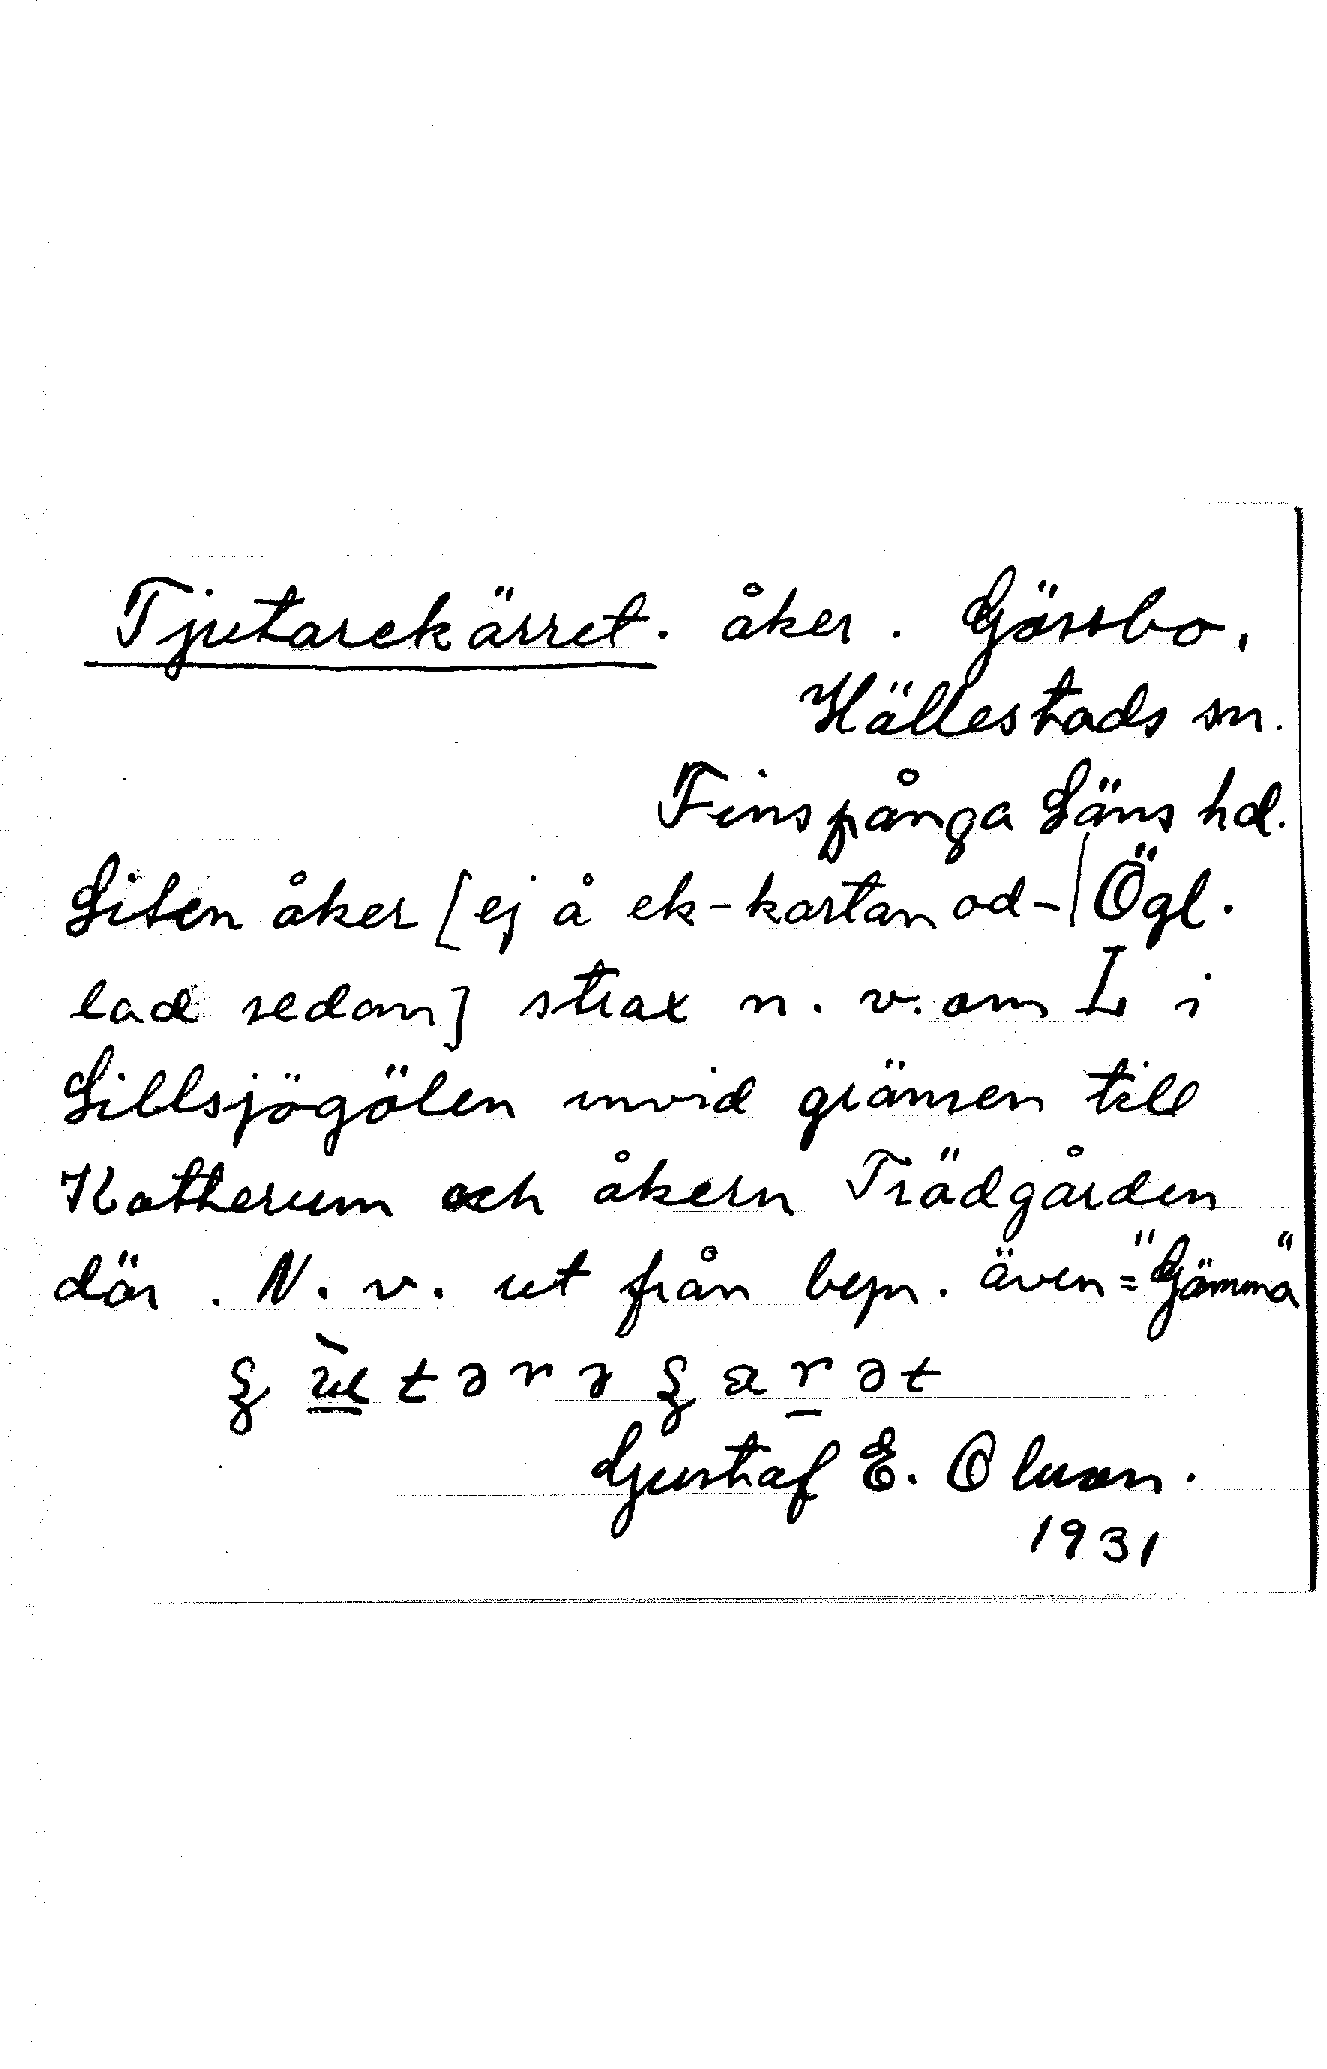 Tjutarekärret. åker. Gössbo,
Hällestads sn.
Finspånga Läns hd.
Liten åker [ej å ek-kartan od- Ögl.
lad sedan] strax n. v. om L i
Lillsjögölen invid gränsen till
Katherum och åkern Trädgården
där. N. v. ut från bepn. även = "Gämma"
Gustaf E. Olsson.
1931